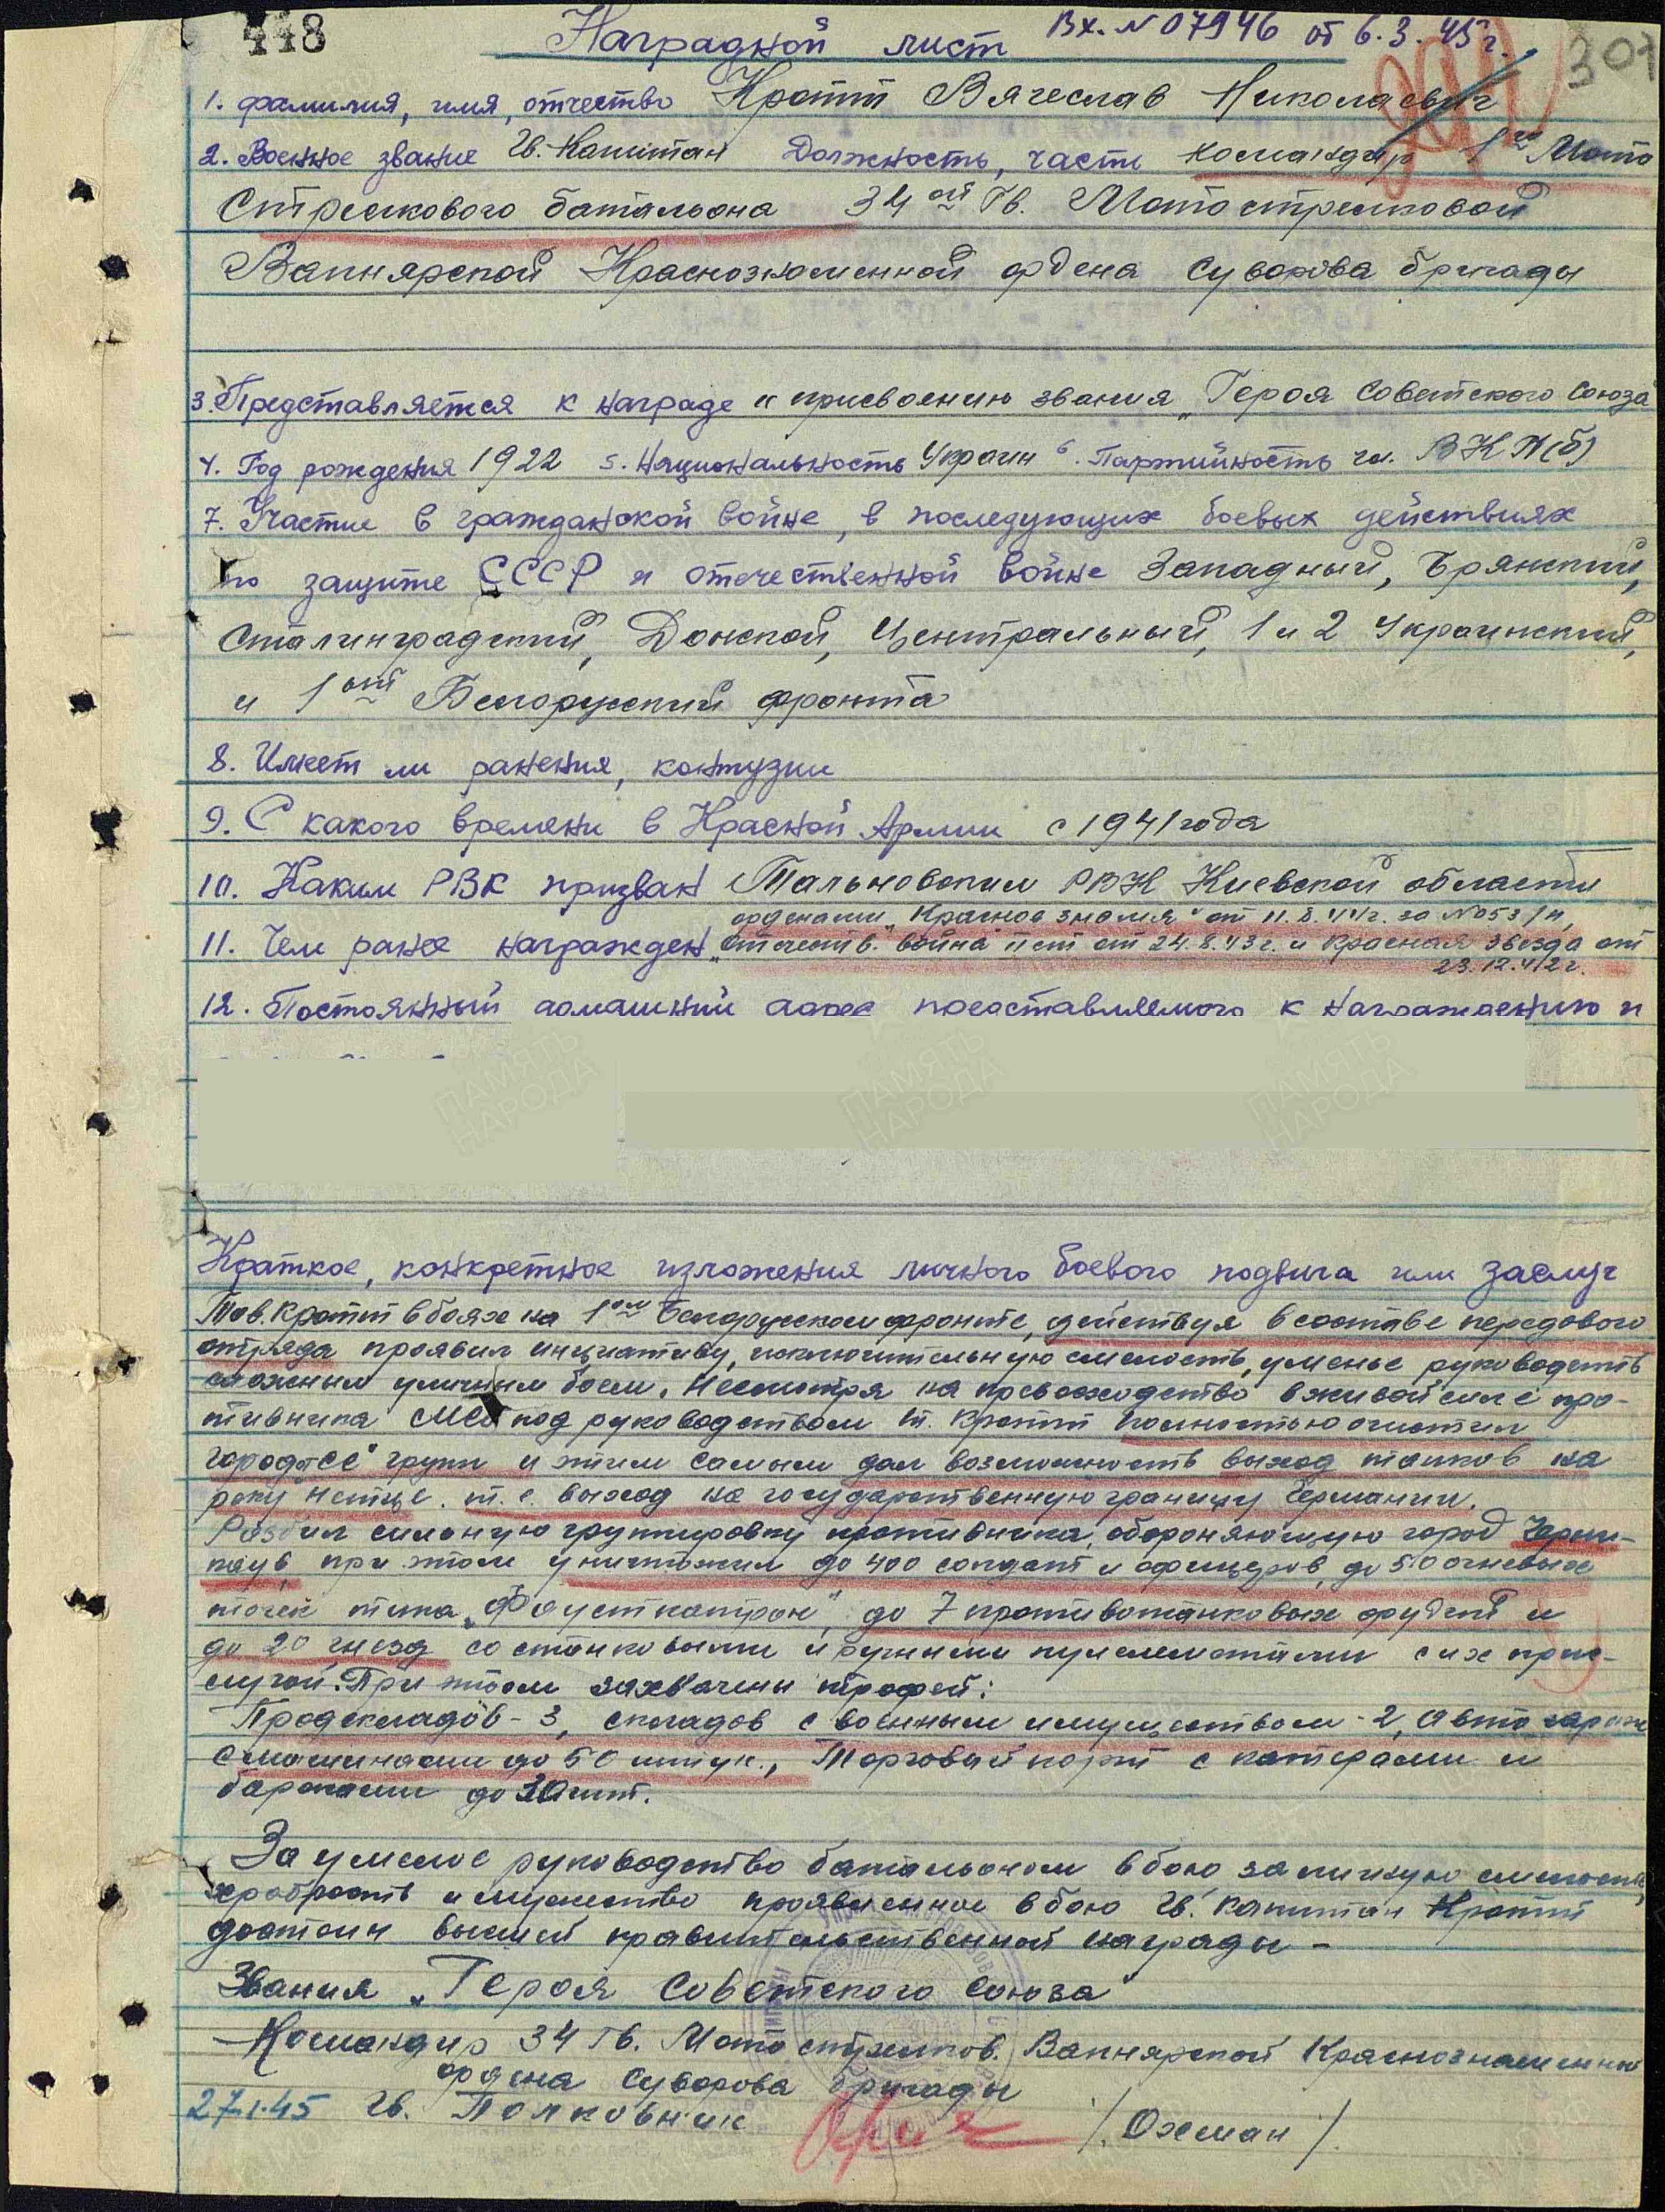 448
Наградной лист Вх. № 07946 от 6.3.45 г.
307
1. фамилия, имя, отчество Кротт Вячеслав Николаевич
2. Военное звание Гв. Капитан Должность, часть командир 1го Мото
Стрелкового батальона 34ой Гв. Мотострелковой
Вапнярской Краснознаменной ордена Суворова бригады
3. Представляется к награде и присвоению звания „Героя Советского Союза"
4. Год рождения 1922 5. Национальность Украин 6. Партийность чл. ВКП(б)
7. Участие в гражданской войне, в последующих боевых действиях
по защите СССР и отечественной войне Западный, Брянский,
Сталинградский, Донской, Центральный, 1 и 2 Украинский,
и 1ый Белорусский фронта
8. Имеет ли ранения, контузии
9. С какого времени в Красной Армии с 1941 года
10. Каким РВК призван Тальновским РВК Киевской области
орденами „Красное знамя" от 11. г. за № 053/н,
11. Чем ранее награжден „Отечеств. война" II ст от 24.8.43 г. и Красная звезда от
23.12.42 г.
12. Постоянный домашний адрес представляемого к награждению и
Краткое, конкретное изложения личного боевого подвига или заслуг
Тов. Кротт в боях на 1ом Белорусском фронте, действуя в составе передового
отряда проявил инциативу, исключительную смелость, уменье руководить
сложным уличным боем. Несмотря на превосходство в живой силе про-
тивника МСБ под руководством т. Кротт полностью очистил
город от групп и этим самым дал возможность выход танков на
реку Нетце. т.е. выход на государственную границу Германии.
Разбил сильную группировку противника, обороняющую город Чарни-
кау, при этом уничтожил до 400 солдат и офицеров, до 50 огневых
точек типа „Фаустпатрон", до 7 противотанковых орудий и
до 20 гнезд со станковыми и ручными пулеметами с их прис-
лугой. При этом захвачены трофей:
Продскладов - 3, складов с военным имуществом - 2, Авто гараж
с машинами до 50 штук., Торговый порт с катерами и
баржами до 30 шт.
За умелое руководство батальоном в бою за личную смелость,
храбрость и мужество проявленное в бою Гв. Капитан Кротт
достоин высшей правительственной награды -
Звания „Героя Советского Союза"
Командир 34 Гв. Мото стрелков. Вапнярской Краснознаменной
ордена Суворова бригады
27.1.45 Гв. Полковник /Охман/.
ПАМЯТЬ НАРОДА
ПАМЯТЬ НАРОДА
ПАМЯТЬ НАРОДА